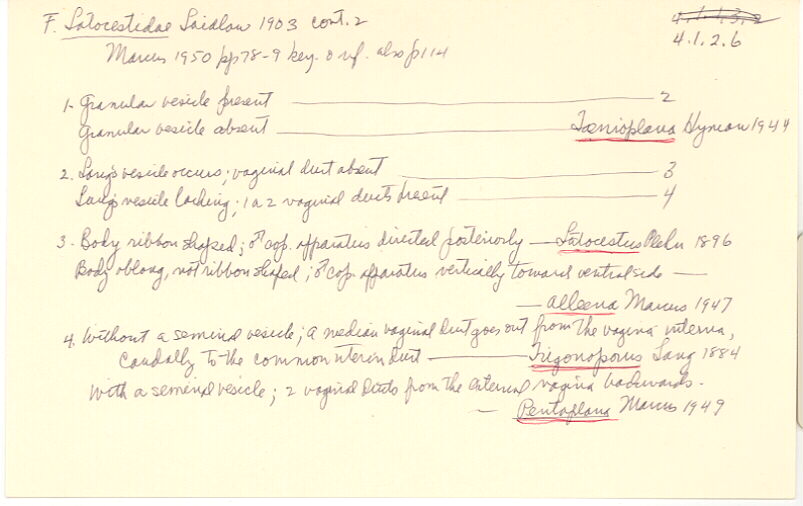 F. Latocestidae Laidlaw 1903 cont. 2
4.1.1.3.2
4.1.2.6
Marcus 1950 pp 78-9 key. & ref. also p114
1. Granular vesicle present — 2
Granular vesicle absent — Taenioplana Hyman 1944
2. Lang's vesicle occurs; vaginal duct absent — 3
Lang's vesicle lacking; 1 a 2 vaginal ducts present — 4
3. Body ribbon shaped; ♂ cop. apparatus directed posteriorly — Latocestus Plehn 1896
Body oblong, not ribbon shaped; ♂ cop apparatus vertically toward ventral side —
— Alleena Marcus 1947
4. Without a seminal vesicle; a median vaginal duct goes out from the vagina interna,
caudally to the common uterine duct — Trigonoporus Lang 1884
With a seminal vesicle; 2 vaginal ducts from the external vagina backwards.
— Pentaplana Marcus 1949